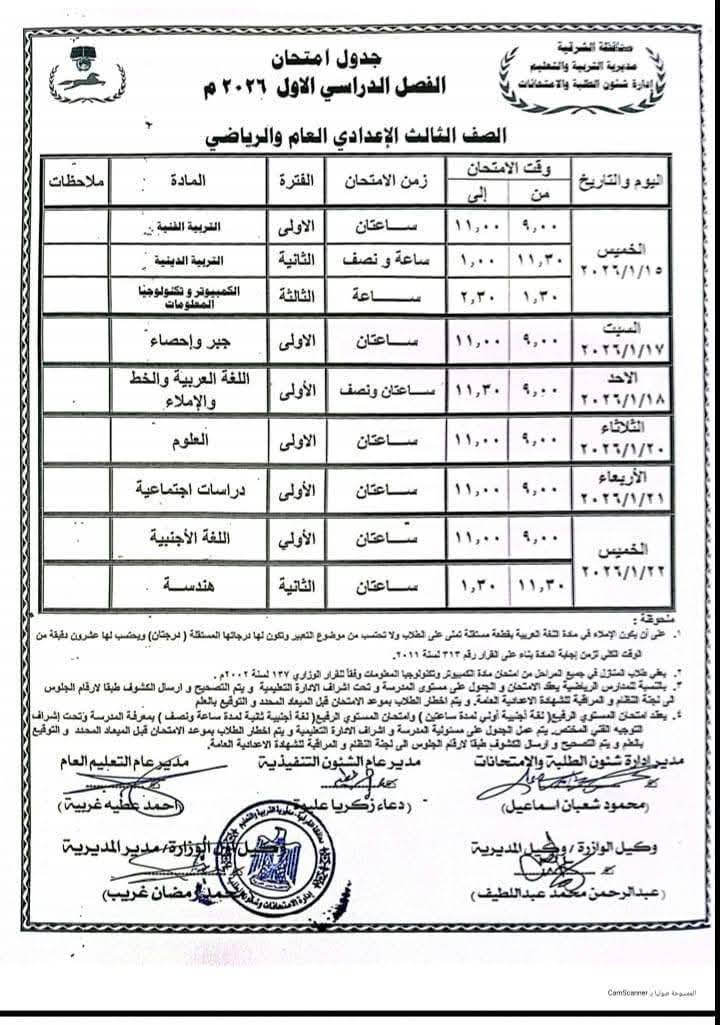 محافظة الشرقية
مديرية التربية والتعليم
إدارة شئون الطلبة والامتحانات
جدول امتحان
الفصل الدراسي الاول ٢٠٢٦ م
الصف الثالث الإعدادي العام والرياضي
اليوم والتاريخ وقت الامتحان زمن الامتحان الفترة المادة ملاحظات
من إلى
الخميس ٢٠٢٦/١/١٥
٩,٠٠ ١١,٠٠ ساعتان الاولى التربية الفنية
١١,٣٠ ١,٠٠ ساعة و نصف الثانية التربية الدينية
١,٣٠ ٢,٣٠ ساعة الثالثة الكمبيوتر و تكنولوجيا المعلومات
السبت ٢٠٢٦/١/١٧ ٩,٠٠ ١١,٠٠ ساعتان الاولى جبر وإحصاء
الاحد ٢٠٢٦/١/١٨ ٩,٠٠ ١١,٣٠ ساعتان ونصف الأولى اللغة العربية والخط والإملاء
الثلاثاء ٢٠٢٦/١/٢٠ ٩,٠٠ ١١,٠٠ ساعتان الاولى العلوم
الأربعاء ٢٠٢٦/١/٢١ ٩,٠٠ ١١,٠٠ ساعتان الأولى دراسات اجتماعية
الخميس ٢٠٢٦/١/٢٢
٩,٠٠ ١١,٠٠ ساعتان الأولي اللغة الأجنبية
١١,٣٠ ١,٣٠ ساعتان الثانية هندسة
ملحوظة :
١. على أن يكون الإملاء في مادة اللغة العربية بقطعة مستقلة تملى على الطلاب ولا تحتسب من موضوع التعبير وتكون لها درجاتها المستقلة ( درجتان) ويحتسب لها عشرون دقيقة من
الوقت الكلي لزمن إجابة المادة بناء على القرار رقم ٣١٣ لسنة ٢٠١١.
٢. يعفي طلاب المنازل في جميع المراحل من امتحان مادة الكمبيوتر وتكنولوجيا المعلومات وفقاً للقرار الوزاري ١٣٧ لسنة ٢٠٠٢م.
٣. بالنسبة للمدارس الرياضية يعقد الامتحان و الجدول على مستوى المدرسة و تحت اشراف الادارة التعليمية و يتم التصحيح و ارسال الكشوف طبقا لارقام الجلوس
الى لجنة النظام و المراقبة للشهادة الاعدادية العامة. و يتم اخطار الطلاب بموعد الامتحان قبل الميعاد المحدد و التوقيع بالعلم
٤. يعقد امتحان المستوي الرفيع( لغة أجنبية أولي لمدة ساعتين ) وامتحان المستوي الرفيع( لغة أجنبية ثانية لمدة ساعة ونصف ) بمعرفة المدرسة وتحت إشراف
التوجيه الفني المختص. يتم عمل الجدول على مسئولية المدرسة و اشراف الادارة التعليمية و يتم اخطار الطلاب بموعد الامتحان قبل الميعاد المحدد و التوقيع
بالعلم و يتم التصحيح و ارسال الكشوف طبقا لارقام الجلوس الى لجنة النظام و المراقبة للشهادة الاعدادية العامة.
مدير إدارة شئون الطلبة والامتحانات مدير عام الشئون التنفيذية مدير عام التعليم العام
(محمود شعبان اسماعيل) (دعاء زكريا عليوة) (احمد عطيه غريبة)
وكيل الوزارة / وكيل المديرية وكيل أول الوزارة / مدير المديرية
(عبدالرحمن محمد عبداللطيف) رمضان غريب)
الممسوحة ضوئيا بـ CamScanner